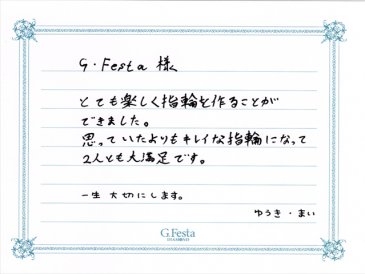 G・Festa 様
とても楽しく指輪を作ることが
できました。
思っていたよりもキレイな指輪になって
2人とも大満足です。
一生 大切にします。
ゆうき・まい
G.Festa